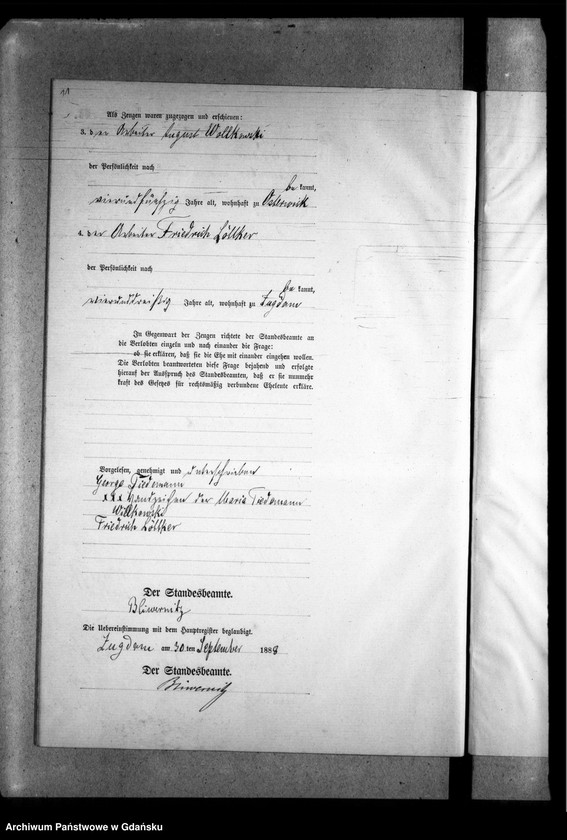 Als Zeugen waren zugezogen und erschienen:
3. der Arbeiter August Wollkowski
der Persönlichkeit nach
be kannt,
vierundfünfzig Jahre alt, wohnhaft zu Osterwick
4. der Arbeiter Friedrich Löttker
der Persönlichkeit nach
be kannt,
vierunddreißig Jahre alt, wohnhaft zu Zugdam
In Gegenwart der Zeugen richtete der Standesbeamte an
die Verlobten einzeln und nach einander die Frage:
ob sie erklären, daß sie die Ehe mit einander eingehen wollen.
Die Verlobten beantworteten diese Frage bejahend und erfolgte
hierauf der Ausspruch des Standesbeamten, daß er sie nunmehr
kraft des Gesetzes für rechtsmäßig verbundene Eheleute erkläre.
Vorgelesen, genehmigt und unterschrieben
George Tiedemann
x x x Handzeichen der Maria Tiedemann
Friedrich Löttker
Der Standesbeamte.
Die Uebereinstimmung mit dem Hauptregister beglaubigt.
Zugdam am 30 ten September 1888
Der Standesbeamte.
Archiwum Państwowe w Gdańsku